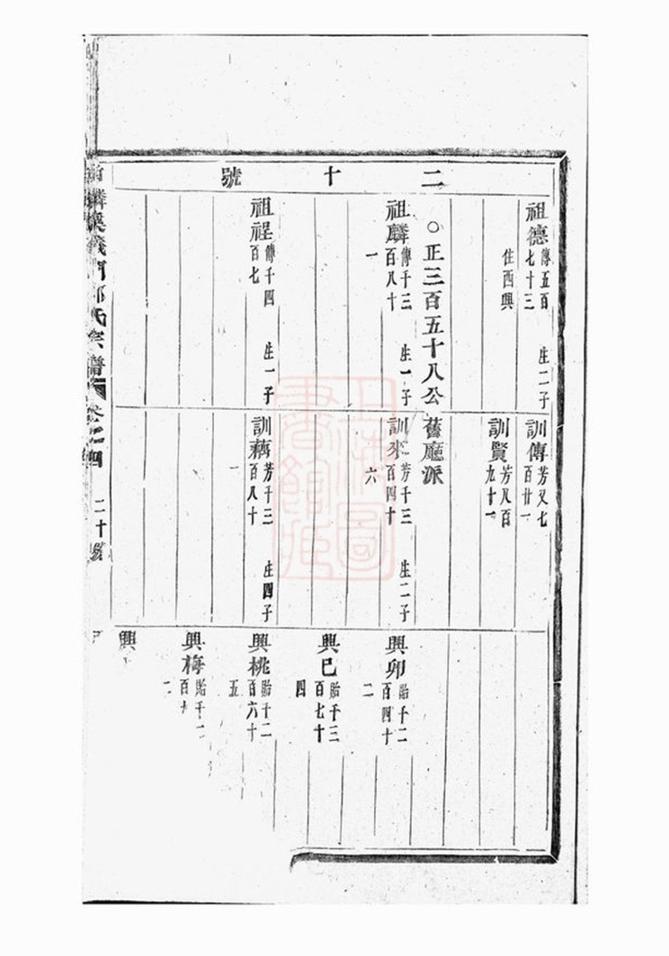 二十號
祖德 傳五百七十三 住西興 生二子
訓傳 芳又七百廿一
訓賢 芳八百九十一
○正三百五十八公舊廳派
祖麟 傳千三百八十一 生一子
訓來 芳千三百四十六 生二子
興卯 貽千二百四十二
興巳 貽千三百七十四
祖禋 傳千四百七 生一子
訓藕 芳千三百八十一 生四子
興桃 貽千二百六十五
興梅 貽千二百
興
義門鄭氏宗譜 卷之四 二十號
上海圖書館藏